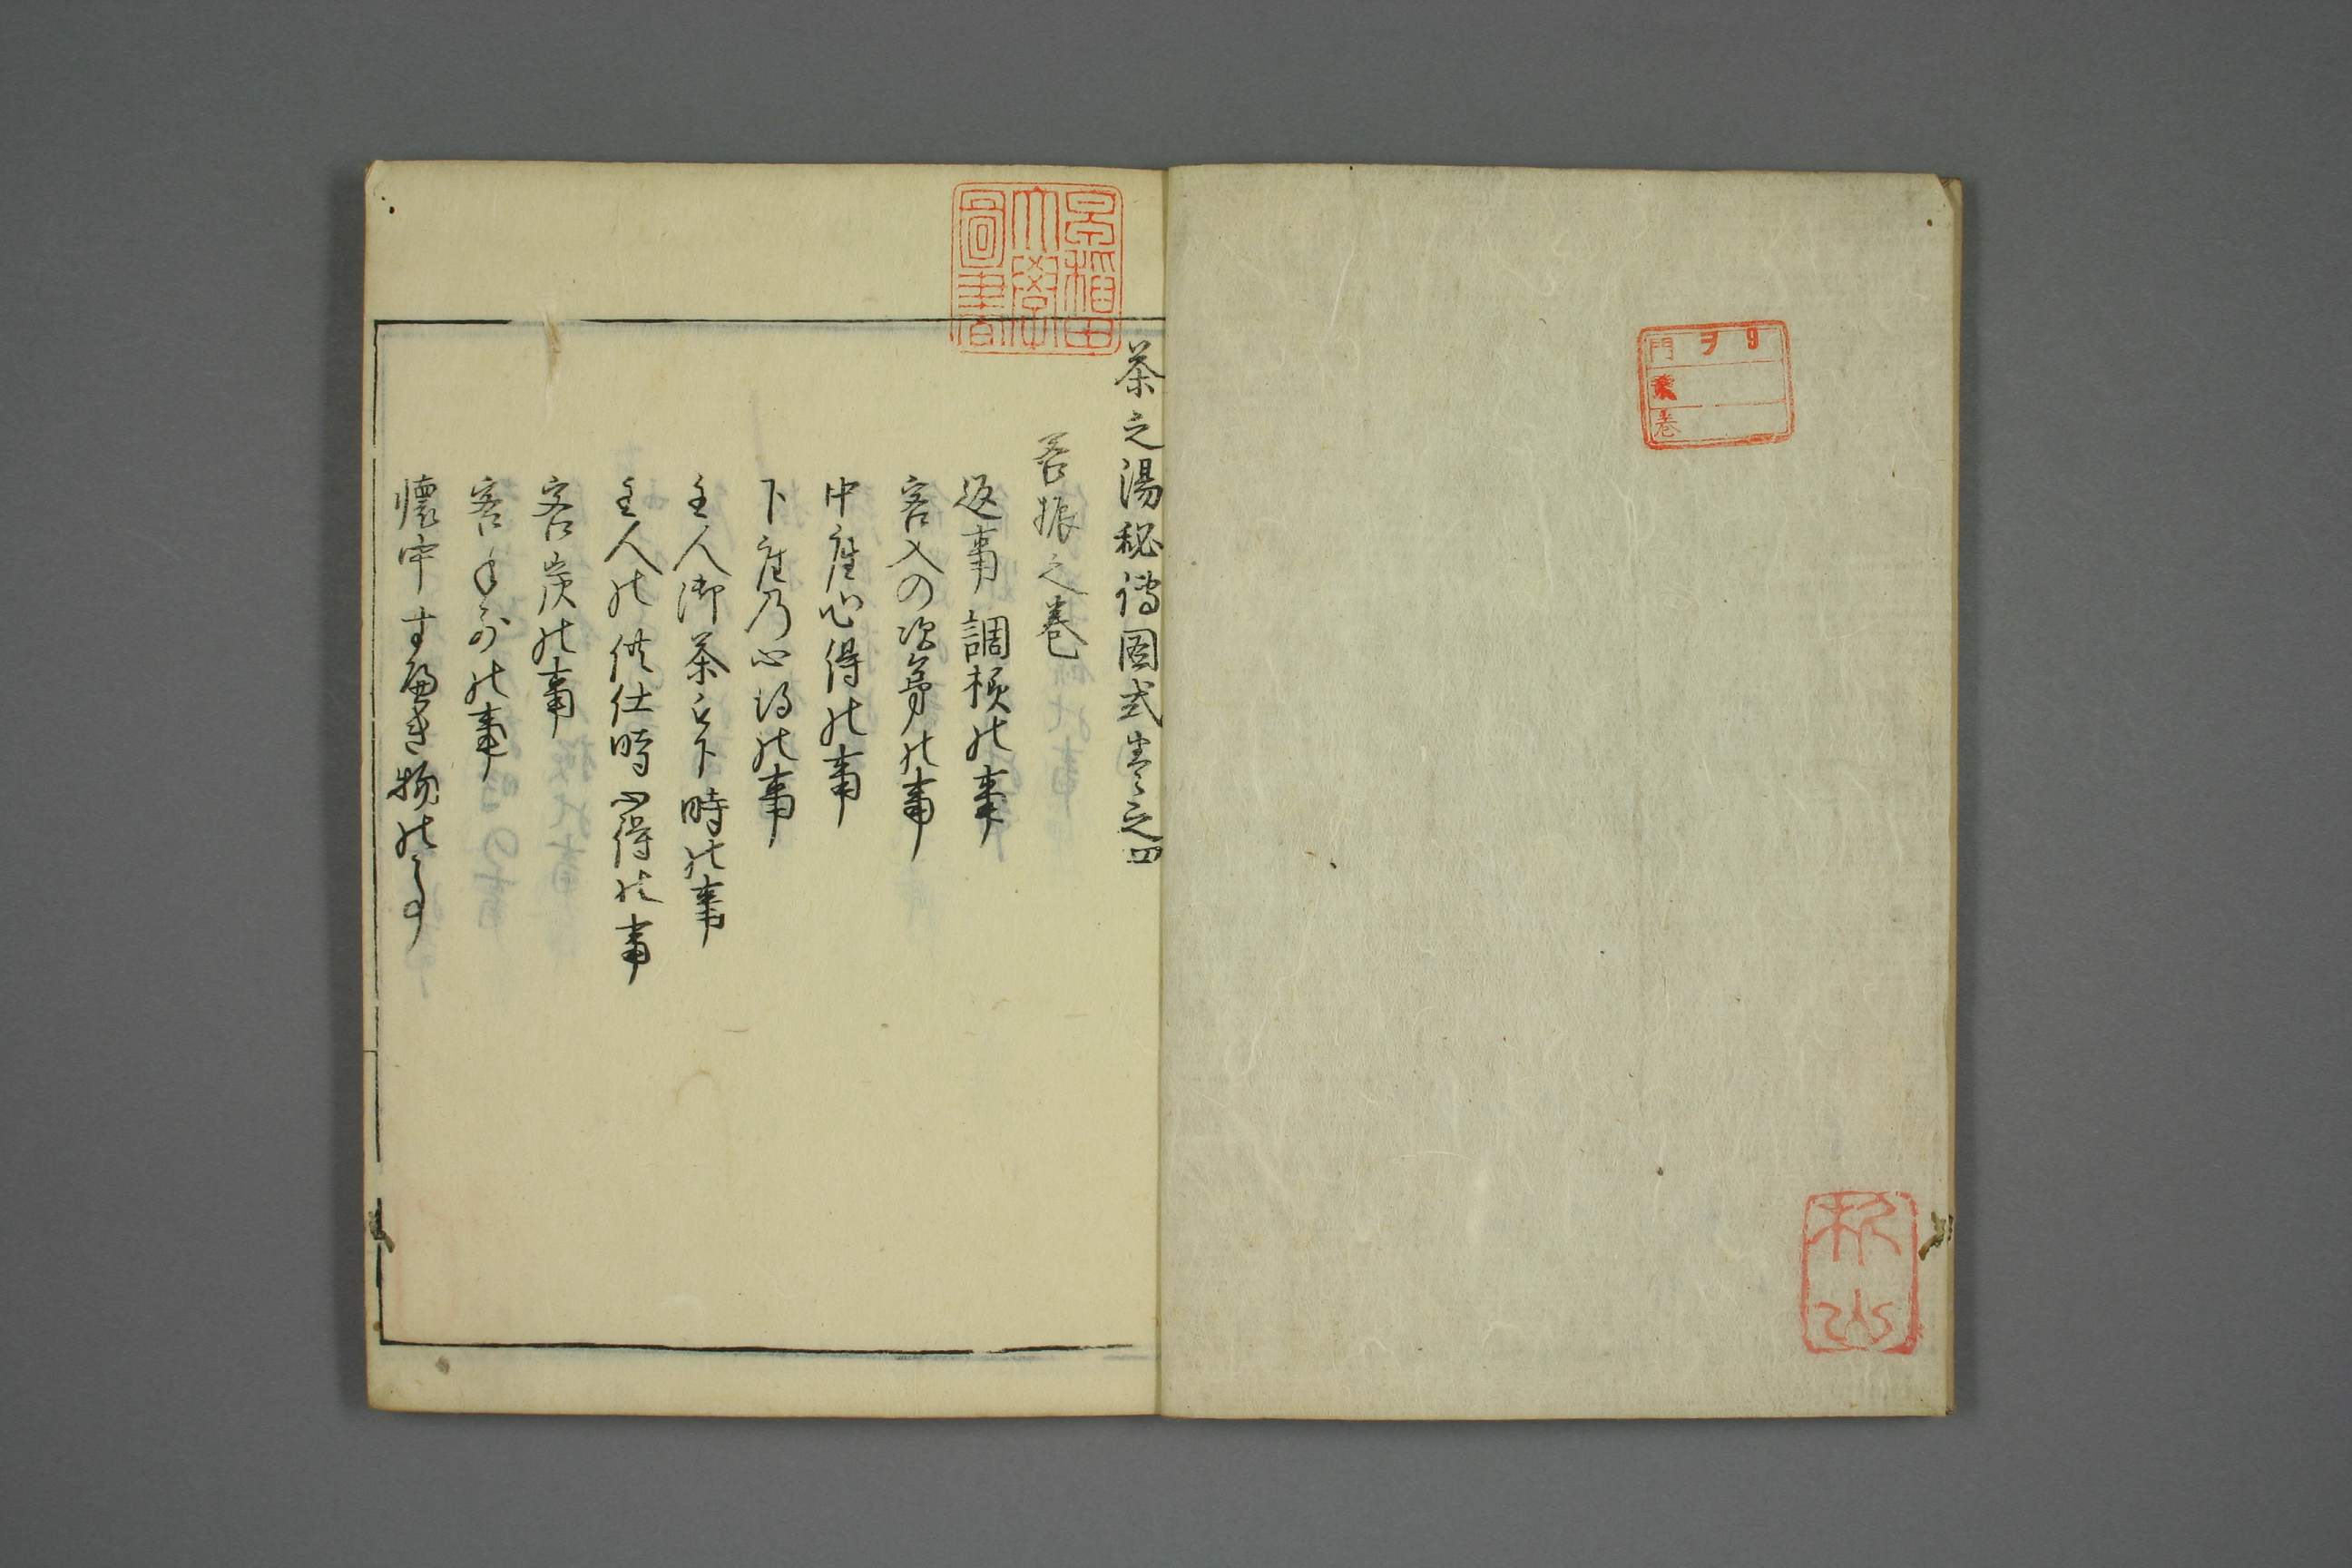 門 ヲ 9
巻
早稲田
大學
圖書
茶之湯秘傳図式巻之四
客振之巻
返事調様の事
客入の次第の事
中座心得の事
下座乃心得の事
主人御茶被下時の事
主人の供仕時心得の事
客炭の事
客手前の事
懐中すべき物の事